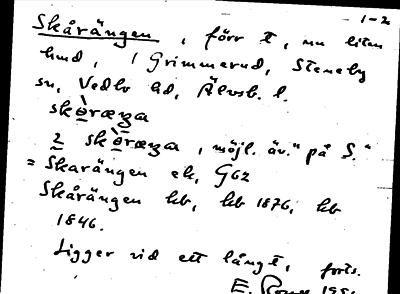 1-2
Skårängen, förr t, nu liten
hmd, i Grimmerud, Steneby
sn, Vedbo hd, Älvsb. l.
skèræŋa
2 skèræŋa, möjl. äv. "på S."
= Skarängen ek, G62
Skårängen kb, kb 1876, kb
1846.
Ligger vid ett långt, forts.